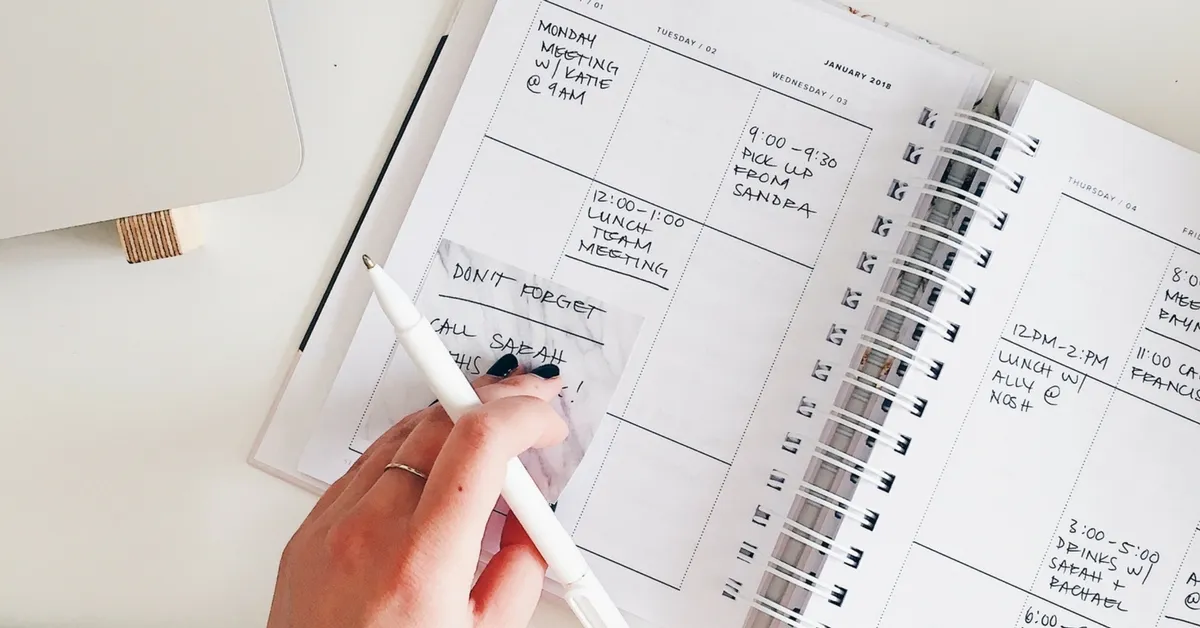 / 01
MONDAY
MEETING
W/ KATIE
@ 9AM
TUESDAY / 02
12:00-1:00
LUNCH
TEAM
MEETING
JANUARY 2018
WEDNESDAY / 03
9:00-9:30
PICK UP
FROM
SANDRA
DON'T FORGET
CALL SARAH
!
THURSDAY / 04
12PM-2:PM
LUNCH W/
ALLY @
NOSH
8:0
MEE
11:00 CA
FRANCIS
3:00-5:00
DRINKS W/
SARAH +
RACHAEL
6:00-
A
@